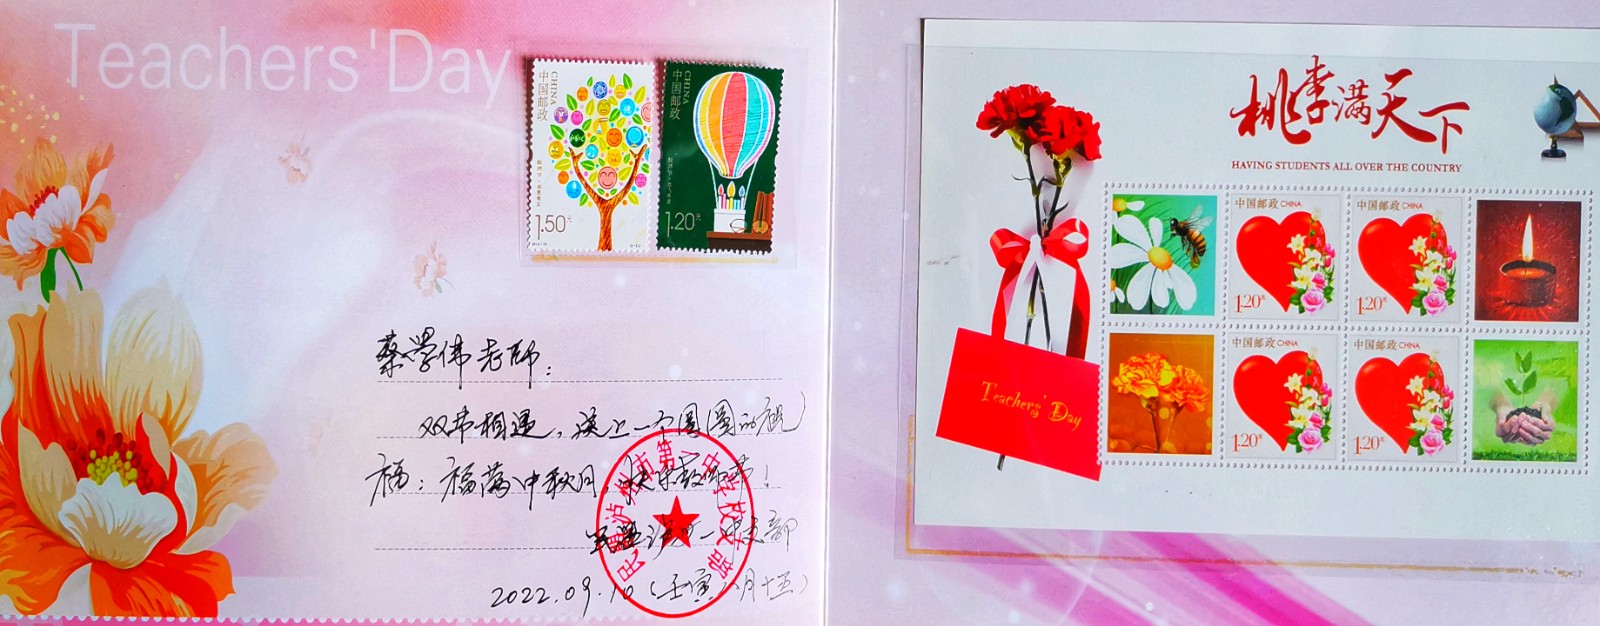 Teachers'Day
中国邮政
CHINA
1.50元
中国邮政
CHINA
1.20元
蔡学伟老师：
双节相逢，送上一个圆圆的祝
福：福满中秋月，快乐教师节！
民盟泸州一中支部
2022.09.10（壬寅八月十五）
桃李满天下
HAVING STUDENTS ALL OVER THE COUNTRY
中国邮政 CHINA
1.20元
中国邮政 CHINA
1.20元
中国邮政 CHINA
1.20元
中国邮政 CHINA
1.20元
Teachers' Day